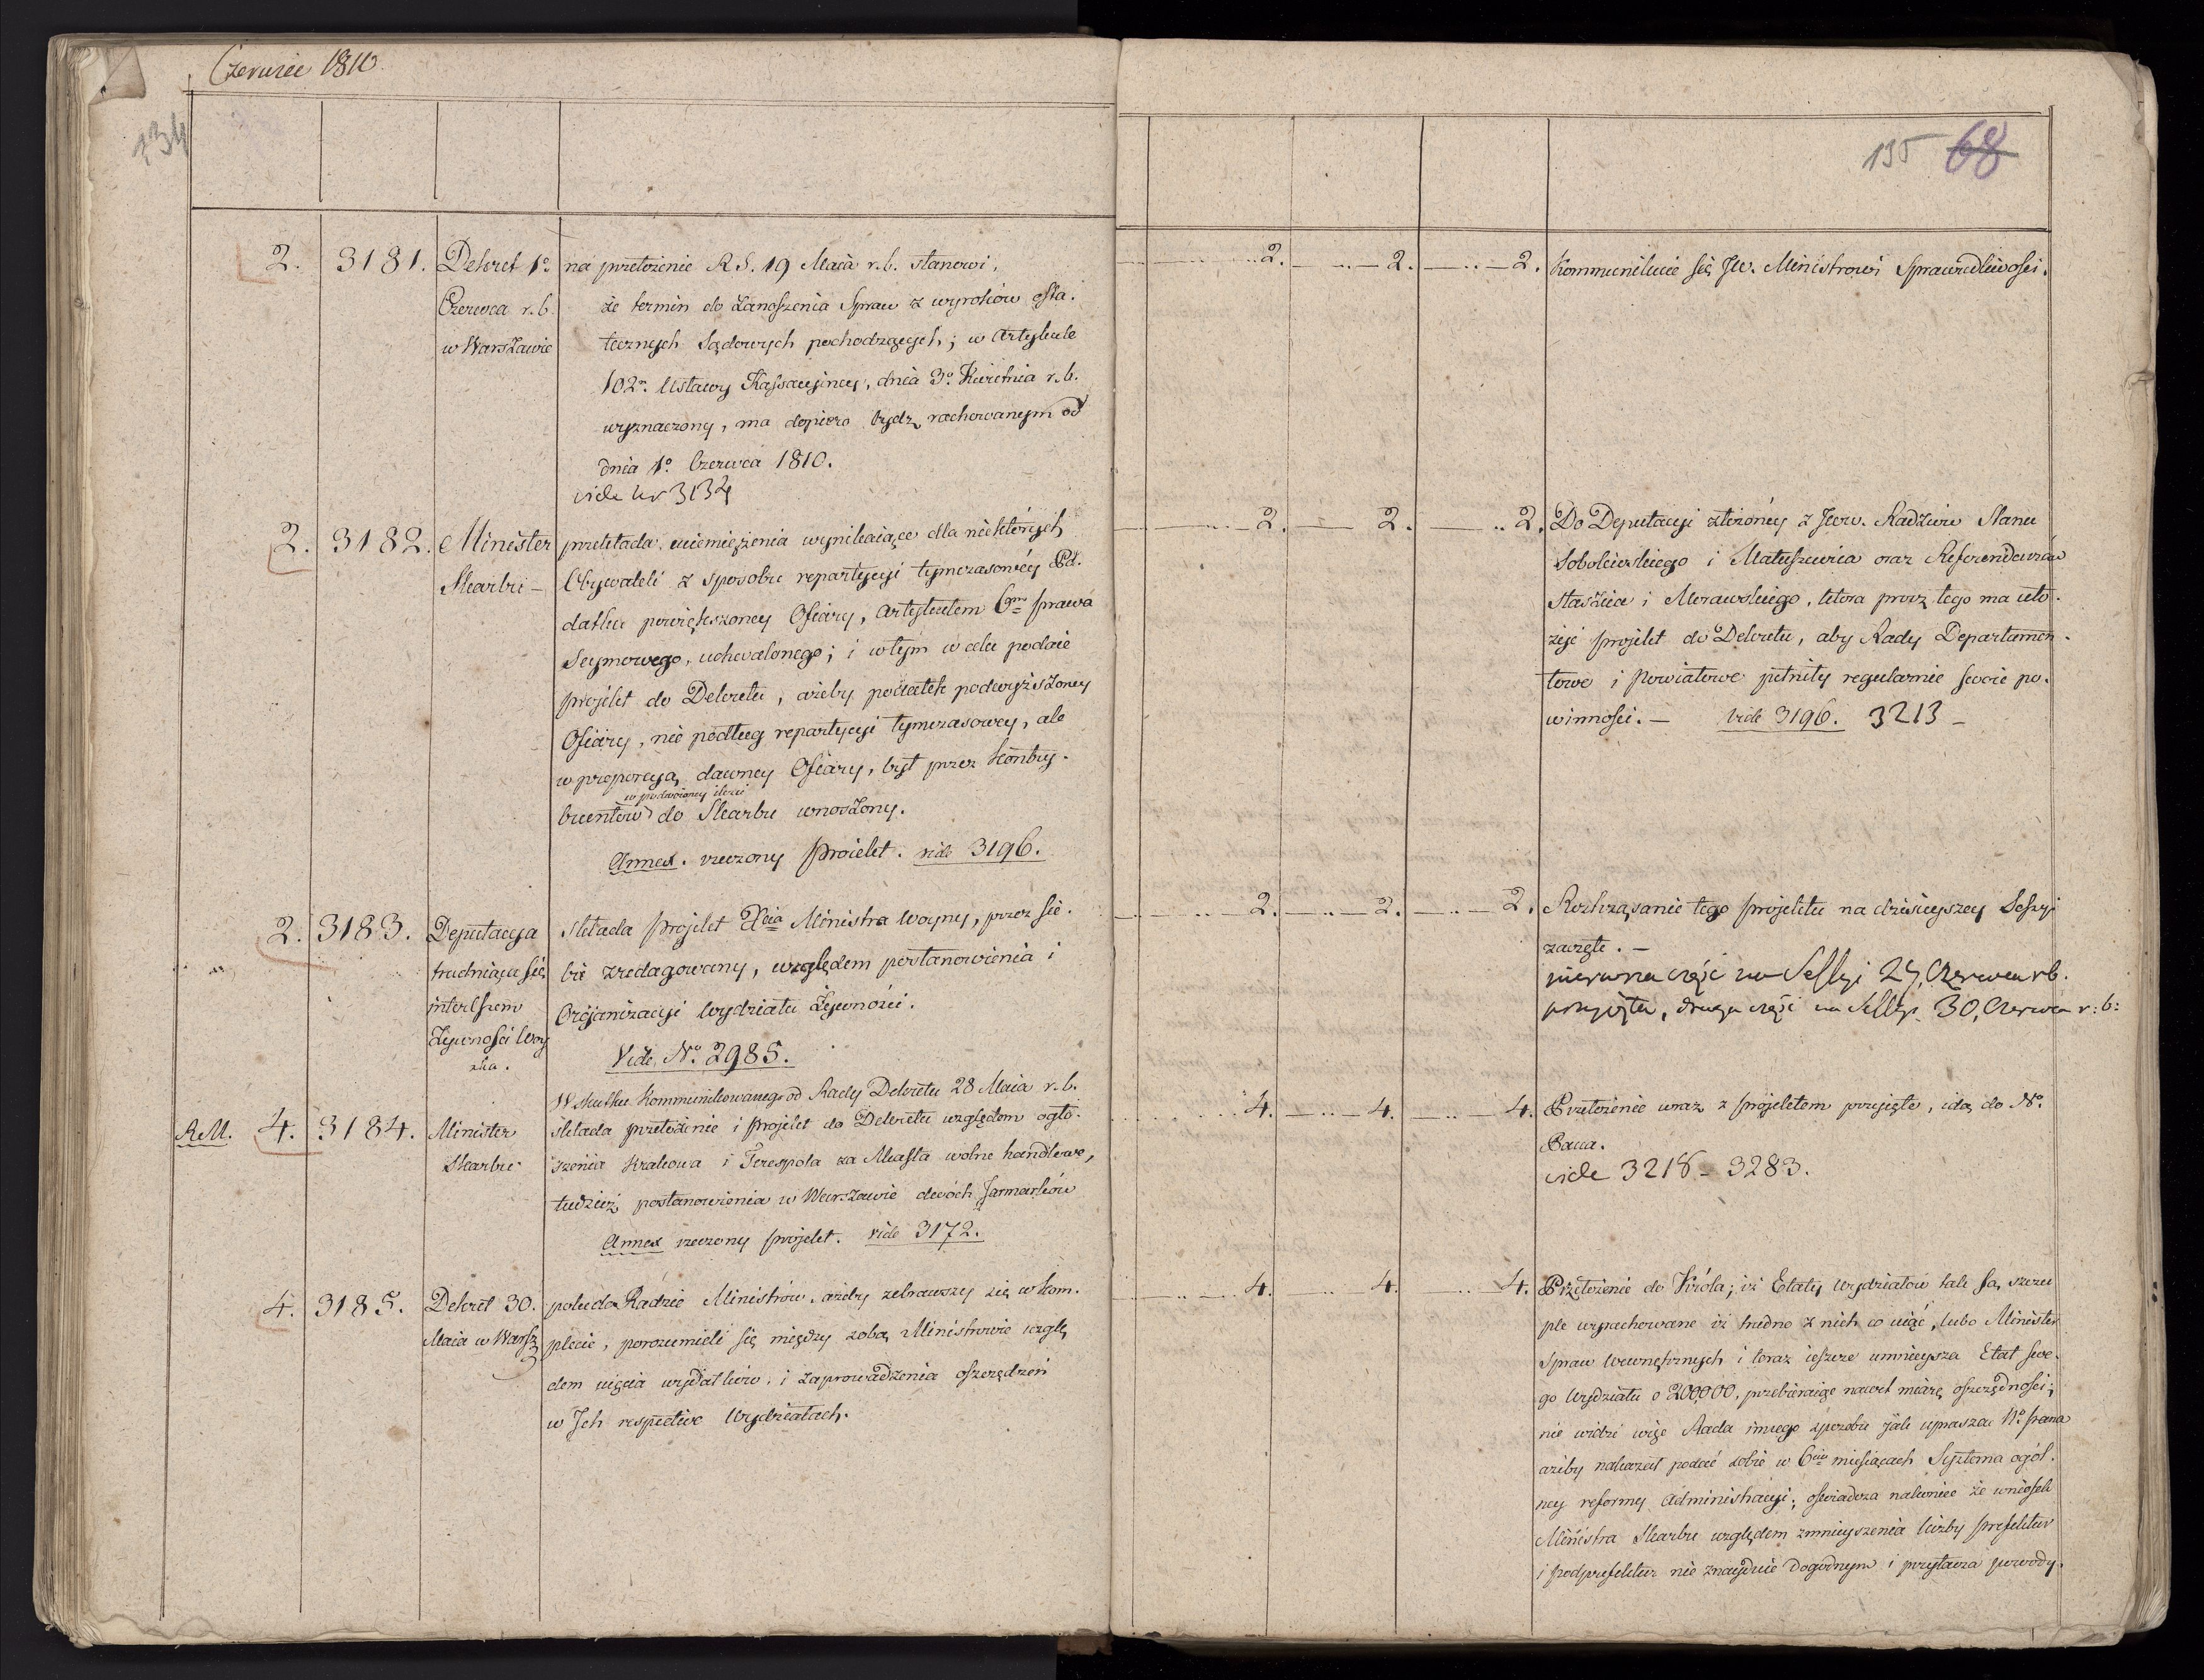 Czerwiec 1810
134
2. 3181. Dekret 1º na przełożenie R.S. 19 Maia r.b. stanowi,
Czerwca r.b. że termin do zanoszenia Spraw z wyroków osta.
w Warszawie tecznych Sądowych pochodzących; w Artykule
102m Ustawy Kassacyiney, dnia 3º Kwietnia r.b.
wyznaczony, ma dopiero bydź rachowanym od
dnia 1º Czerwca 1810.
vide nr 3134
2. 3182. Minister przekłada uciemiężenia wynikaiące dla niektórych
Skarbu – Obywateli z sposobu repartycyi tymczasowéy Po.
datku powiększoney Ofiary, Artykułem 6m prawa
Seymowego, uchwalonego; i w tym w celu podaie
projekt do Dekretu, ażeby podatek podwyższoney
Ofiary, nie podług repartycyi tymczasowey, ale
w proporcyą dawney Ofiary, był przez kontry.
w podwoioney ilości
buentów do Skarbu wnoszony.
Annex. rzeczony Proiekt. vide 3196.
2. 3183. Deputacya składa projekt Xcia Ministra Woyny, przez sie.
trudniąca się bie zredagowany, względem postanowienia i
interessem Organizacyi Wydziału Żywności.
Żywności Woy
ska.
Vide Nº 2985.
W skutku kommunikowanego od Rady Dekretu 28 Maia r.b.
R.M. 4. 3184. Minister składa przełożenie i projekt do Dekretu względem ogło.
Skarbu szenia Krakowa i Terespola za Miasta wolne handlowe,
tudzież postanowienia w Warszawie dwóch Jarmarków
Annex rzeczony projekt. vide 3172.
4. 3185. Dekret 30. poleca Radzie Ministrów, ażeby zebrawszy się w kom.
Maia w Warsz. plecie, porozumieli się między sobą Ministrowie wzglę
dem uięcia wydatków, i zaprowadzenia oszczędzeń
w Ich respective Wydziałach.
135 68
2. 2. 2. Kommunikuie się JW. Ministrowi Sprawiedliwości.
2. 2. 2. Do Deputacyi złożonéy z JWW. Radzców Stanu
Sobolewskiego i Matuszewica oraz Referendarzów
Staszica i Morawskiego, która prócz tego ma uło.
żyć projekt do Dekretu, aby Rady Departamen.
towe i Powiatowe pełniły regularnie swoie po.
winności. – vide 3196. 3213 –
2. 2. 2. Roztrząsanie tego projektu na dzisieyszey Sessyi
zaczęte. –
pierwsza część na Sessyi 27, Czerwca r.b.
przyięta, druga część na Sessyi 30, Czerwca r: b:
4. 4. 4. Przełożenie wraz z projektem przyięte, idą do Nº.
Pana.
vide 3218 – 3283.
4. 4. 4. Przełożenie do Króla; iż Etaty Wydziałów tak są szczu
ple wyrachowane iż trudno z nich co uiąć, lubo Minister
Spraw Wewnętrznych i teraz ieszcze umnieysza Etat swe.
go Wydziału o 200,000, przebieraiąc nawet miarę oszczędności;
nie widzi więc Rada innego sposobu jak uprasza Nº pana
ażeby nakazał podać sobie w 6ciu miesiącach Systema ogól.
ney reformy Administracyi; oświadcza nakoniec że wniosek
Ministra Skarbu względem zmnieyszenia liczby prefektur
i podprefektur nie znayduie dogodnym i przytacza powody.